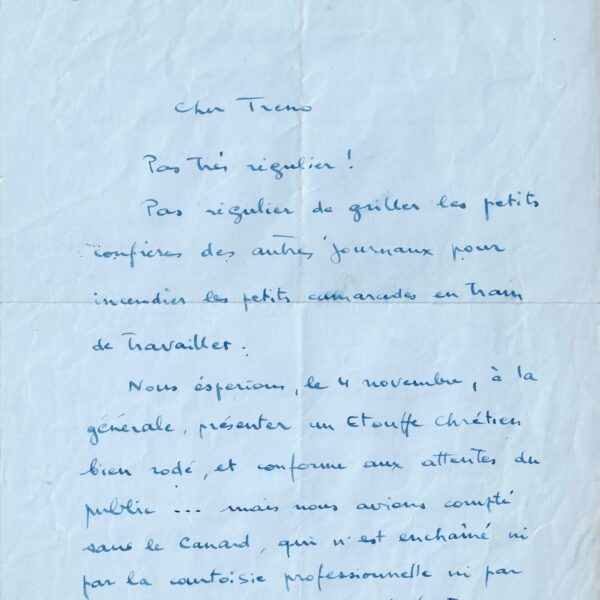 Cher Treno
Pas très régulier !
Pas régulier de griller les petits
confrères des autres journaux pour
incendier les petits camarades en train
de travailler.
Nous éspérions, le 4 novembre, à la
générale, présenter un Etouffe Chrétien
bien rodé, et conforme aux attentes du
public ... mais nous avions compté
sans le Canard, qui n'est enchaîné ni
par la courtoisie professionnelle ni par